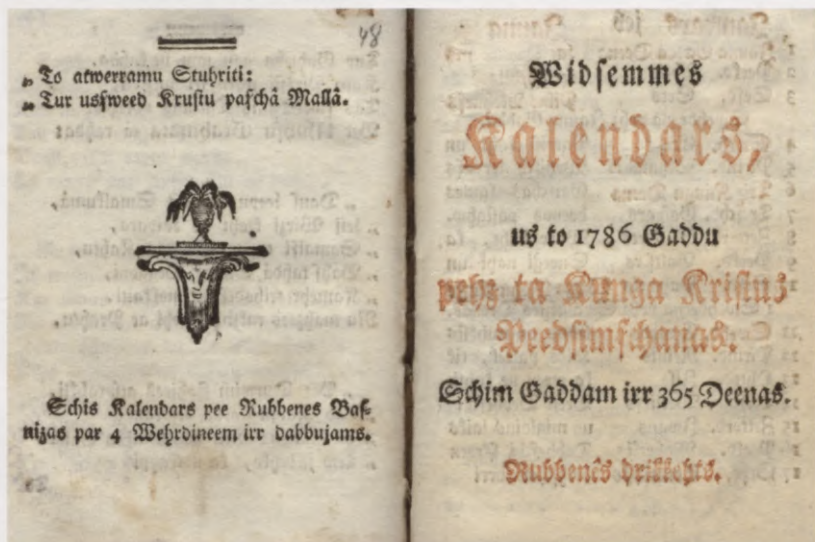 48
„ To atwerramu Stuhriti:
„ Tur usſweed Kruſtu paſchâ Mallâ.
Schis Kalendars pee Rubbenes Baſ-
nizas par 4 Wehrdineem irr dabbujams.
Widſemmes
Kalendars,
us to 1786 Gaddu
pehz ta Kunga Kriſtus
Peedſimſchanas.
Schim Gaddam irr 365 Deenas.
Rubbenês drikkehts.